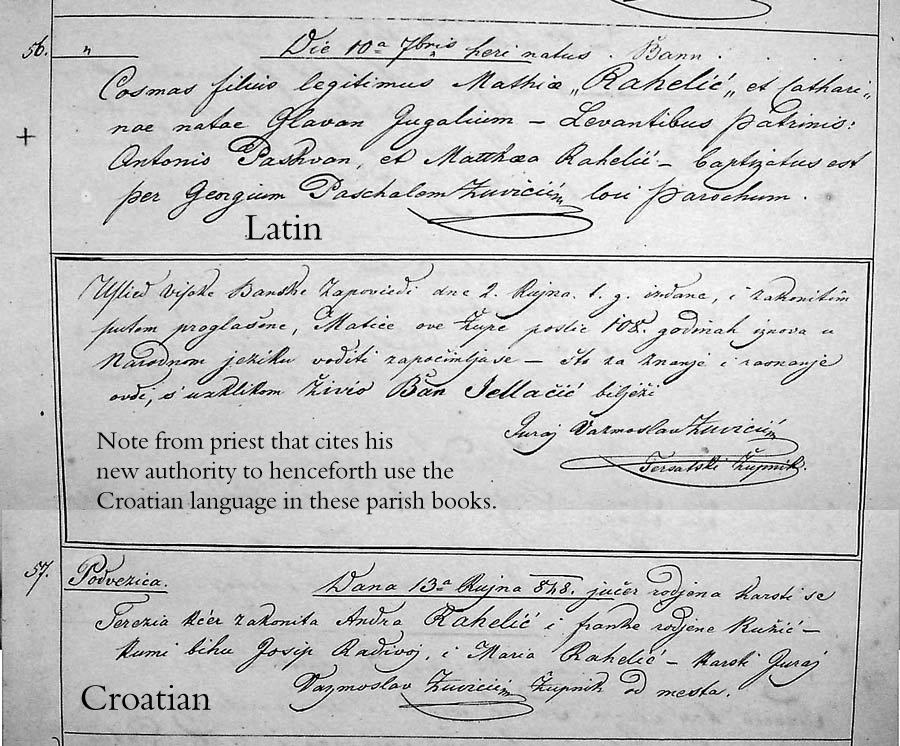 56. " Die 10a 7bris heri natus. Bann.
Cosmas filius legitimus Mathiæ „Rahelić„ et Cathari„
+ nae natae Glavan Jugalium – Levantibus Patrinis:
Antonio Pashvan, et Matthæa Rahelić – baptizatus est
per Georgium Paschalem Zuvičić loci Parochum.
Latin
Uslied visoke Banske Zapoviedi dne 2. Rujna. t. g. izdane, i zakonitim
putem proglašene, Matice ove Župe poslie 108. godinah iznova u
Narodnom jeziku voditi započimljase – što za znanje i ravnanje
ovdi, s' uzklikom Živio Ban Jellačić bilježi
Juraj Vazmoslav Zuvičić
Tersatski Župnik.
Note from priest that cites his
new authority to henceforth use the
Croatian language in these parish books.
57. Podvezica. Dana 13a Rujna 848. jučer rodjena karsti se
Terezia kćer zakonita Andra Rahelić i Franke rodjene Ružić –
kumi bihu Josip Radivoj, i Maria Rahelić – karsti Juraj
Vazmoslav Zuvičić Župnik od mesta.
Croatian